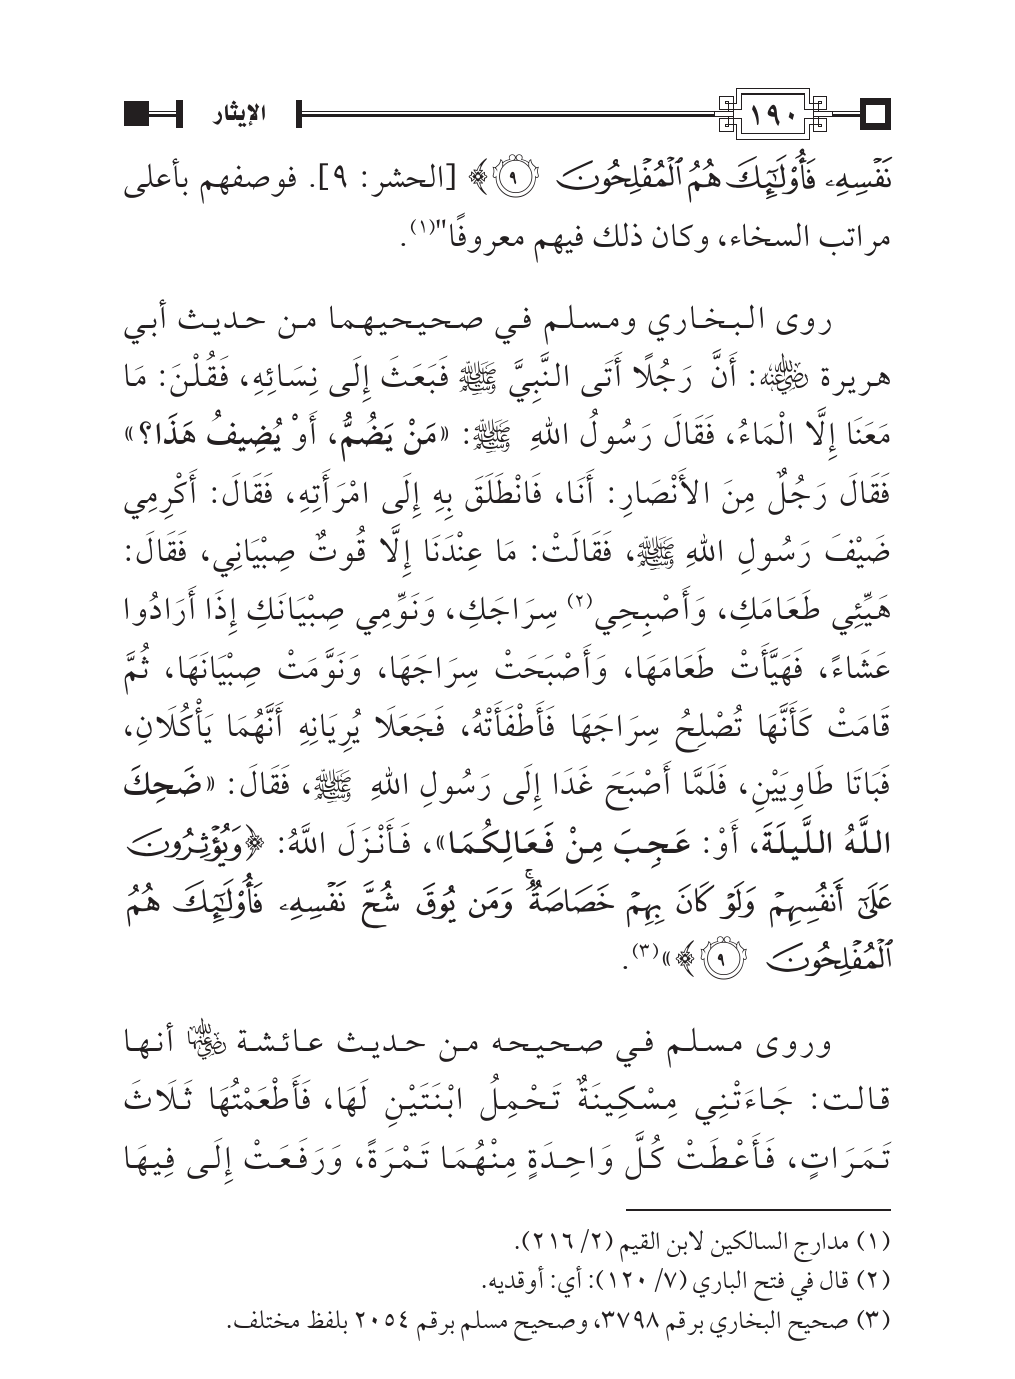 ١٩٠
الإيثار
نَفْسِهِۦ فَأُوْلَٰٓئِكَ هُمُ ٱلْمُفْلِحُونَ ٩﴾ [الحشر: ٩]. فوصفهم بأعلى
مراتب السخاء، وكان ذلك فيهم معروفًا"(١).
روى البخاري ومسلم في صحيحيهما من حديث أبي
هريرة رضي الله عنه: أَنَّ رَجُلًا أَتَى النَّبِيَّ ﷺ فَبَعَثَ إِلَى نِسَائِهِ، فَقُلْنَ: مَا
مَعَنَا إِلَّا الْمَاءُ، فَقَالَ رَسُولُ اللهِ ﷺ: «مَنْ يَضُمُّ، أَوْ يُضِيفُ هَذَا؟»
فَقَالَ رَجُلٌ مِنَ الأَنْصَارِ: أَنَا، فَانْطَلَقَ بِهِ إِلَى امْرَأَتِهِ، فَقَالَ: أَكْرِمِي
ضَيْفَ رَسُولِ اللهِ ﷺ، فَقَالَتْ: مَا عِنْدَنَا إِلَّا قُوتٌ صِبْيَانِي، فَقَالَ:
هَيِّئِي طَعَامَكِ، وَأَصْبِحِي(٢) سِرَاجَكِ، وَنَوِّمِي صِبْيَانَكِ إِذَا أَرَادُوا
عَشَاءً، فَهَيَّأَتْ طَعَامَهَا، وَأَصْبَحَتْ سِرَاجَهَا، وَنَوَّمَتْ صِبْيَانَهَا، ثُمَّ
قَامَتْ كَأَنَّهَا تُصْلِحُ سِرَاجَهَا فَأَطْفَأَتْهُ، فَجَعَلَا يُرِيَانِهِ أَنَّهُمَا يَأْكُلَانِ،
فَبَاتَا طَاوِيَيْنِ، فَلَمَّا أَصْبَحَ غَدَا إِلَى رَسُولِ اللهِ ﷺ، فَقَالَ: «ضَحِكَ
اللَّهُ اللَّيلَةَ، أَوْ: عَجِبَ مِنْ فَعَالِكُمَا»، فَأَنْزَلَ اللَّهُ: ﴿وَيُؤْثِرُونَ
عَلَىٰٓ أَنفُسِهِمْ وَلَوْ كَانَ بِهِمْ خَصَاصَةٌۚ وَمَن يُوقَ شُحَّ نَفْسِهِۦ فَأُوْلَٰٓئِكَ هُمُ
ٱلْمُفْلِحُونَ ٩﴾»(٣).
وروى مسلم في صحيحه من حديث عائشة رضي الله عنها أنها
قالت: جَاءَتْنِي مِسْكِينَةٌ تَحْمِلُ ابْنَتَيْنِ لَهَا، فَأَطْعَمْتُهَا ثَلَاثَ
تَمَرَاتٍ، فَأَعْطَتْ كُلَّ وَاحِدَةٍ مِنْهُمَا تَمْرَةً، وَرَفَعَتْ إِلَى فِيهَا
(١) مدارج السالكين لابن القيم (٢/ ٢١٦).
(٢) قال في فتح الباري (٧/ ١٢٠): أي: أوقديه.
(٣) صحيح البخاري برقم ٣٧٩٨، وصحيح مسلم برقم ٢٠٥٤ بلفظ مختلف.